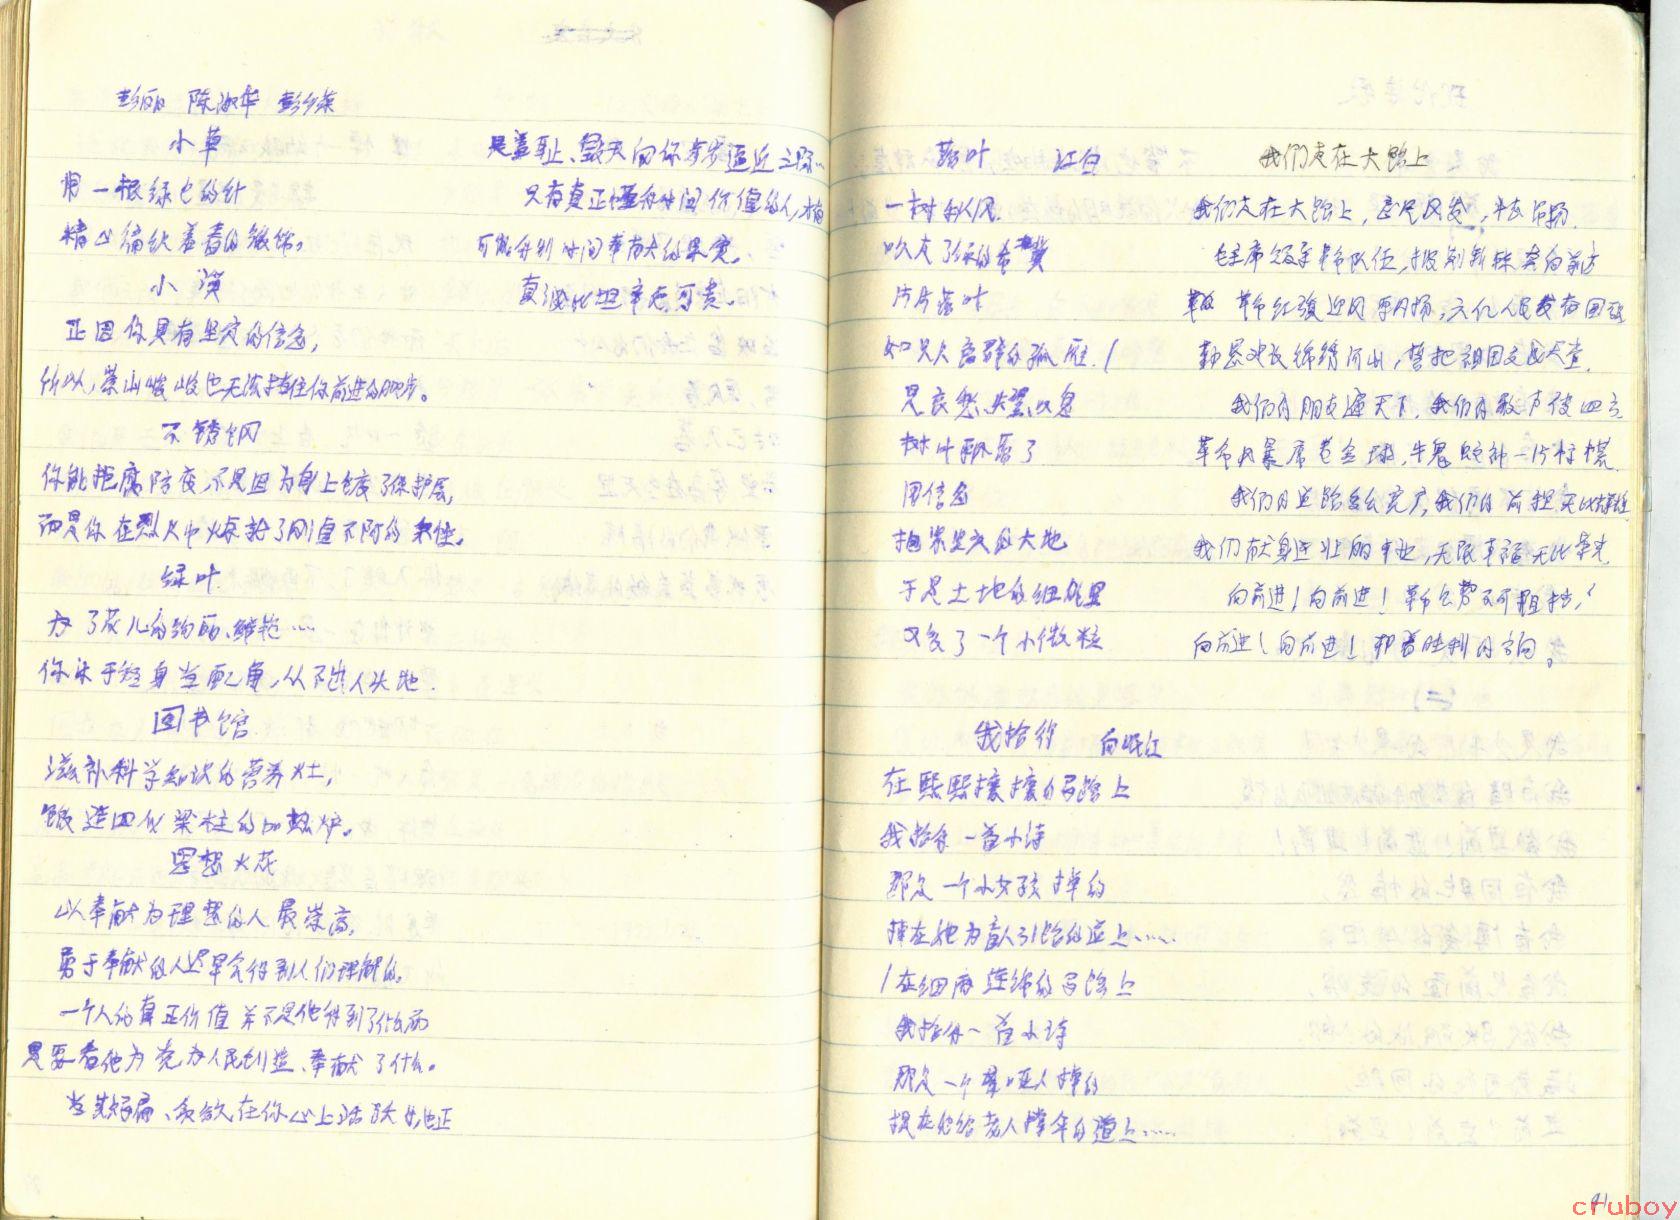 彭丽 陈淑华
小草
用一根绿色的针
精心编织着春的锦饰。
小溪
正因你具有坚定的信念,
所以,崇山峻岭也无法挡住你前进的脚步。
不锈钢
你能拒腐防变,不是因为身上镀了保护层,
而是你在烈火中炼就了刚直不阿的秉性。
绿叶
为了花儿的绚丽、鲜艳……
你乐于终身当配角,从不出人头地.
图书馆
滋补科学知识的营养灶,
锻造四化梁柱的加热炉。
思想火花
以奉献为理想的人最崇高,
勇于奉献的人迟早会得到人们理解的。
一个人的真正价值并不是他得到了什么而
是要看他为党为人民创造、奉献了什么。
当贪欲在你心上
是羞耻、毁灭向你步步逼近之际…
只有真正懂得时间价值的人,才有
可能得到时间奉献的果实。
真诚比坦率更可贵。
落叶 江白
一树秋风
吹灰了绿的希冀
片片落叶
如只只离群的孤雁!
是哀愁、失望、叹息
树叶飘落了
用信念
拥抱坚实的大地
于是土地的细胞里
又多了一个小微粒
我拾得 向岷江
在熙熙攘攘的马路上
我拾得一首小诗
那是一个小女孩掉的
掉在她为盲人引路的道上……
在细雨连绵的马路上
我拾得一首小诗
那是一个聋哑人掉的
掉在他给老人撑伞的道上……
我们走在大路上
我们走在大路上,意气风发,斗志昂扬.
毛主席领导革命队伍,披荆斩棘奔向前方
革命红旗迎风飘扬,六亿人民发奋图强
勤恳建设锦绣河山,誓把祖国变成天堂.
我们的朋友遍天下,我们的歌声传四方
革命风暴席卷全球,牛鬼蛇神一片恐慌.
我们的道路多么宽广,我们的前程无比辉煌
我们献身这壮丽事业,无限幸福无比荣光
向前进!向前进!革命气势不可阻挡,
向前进!向前进!朝着胜利的方向。
41
cruboy